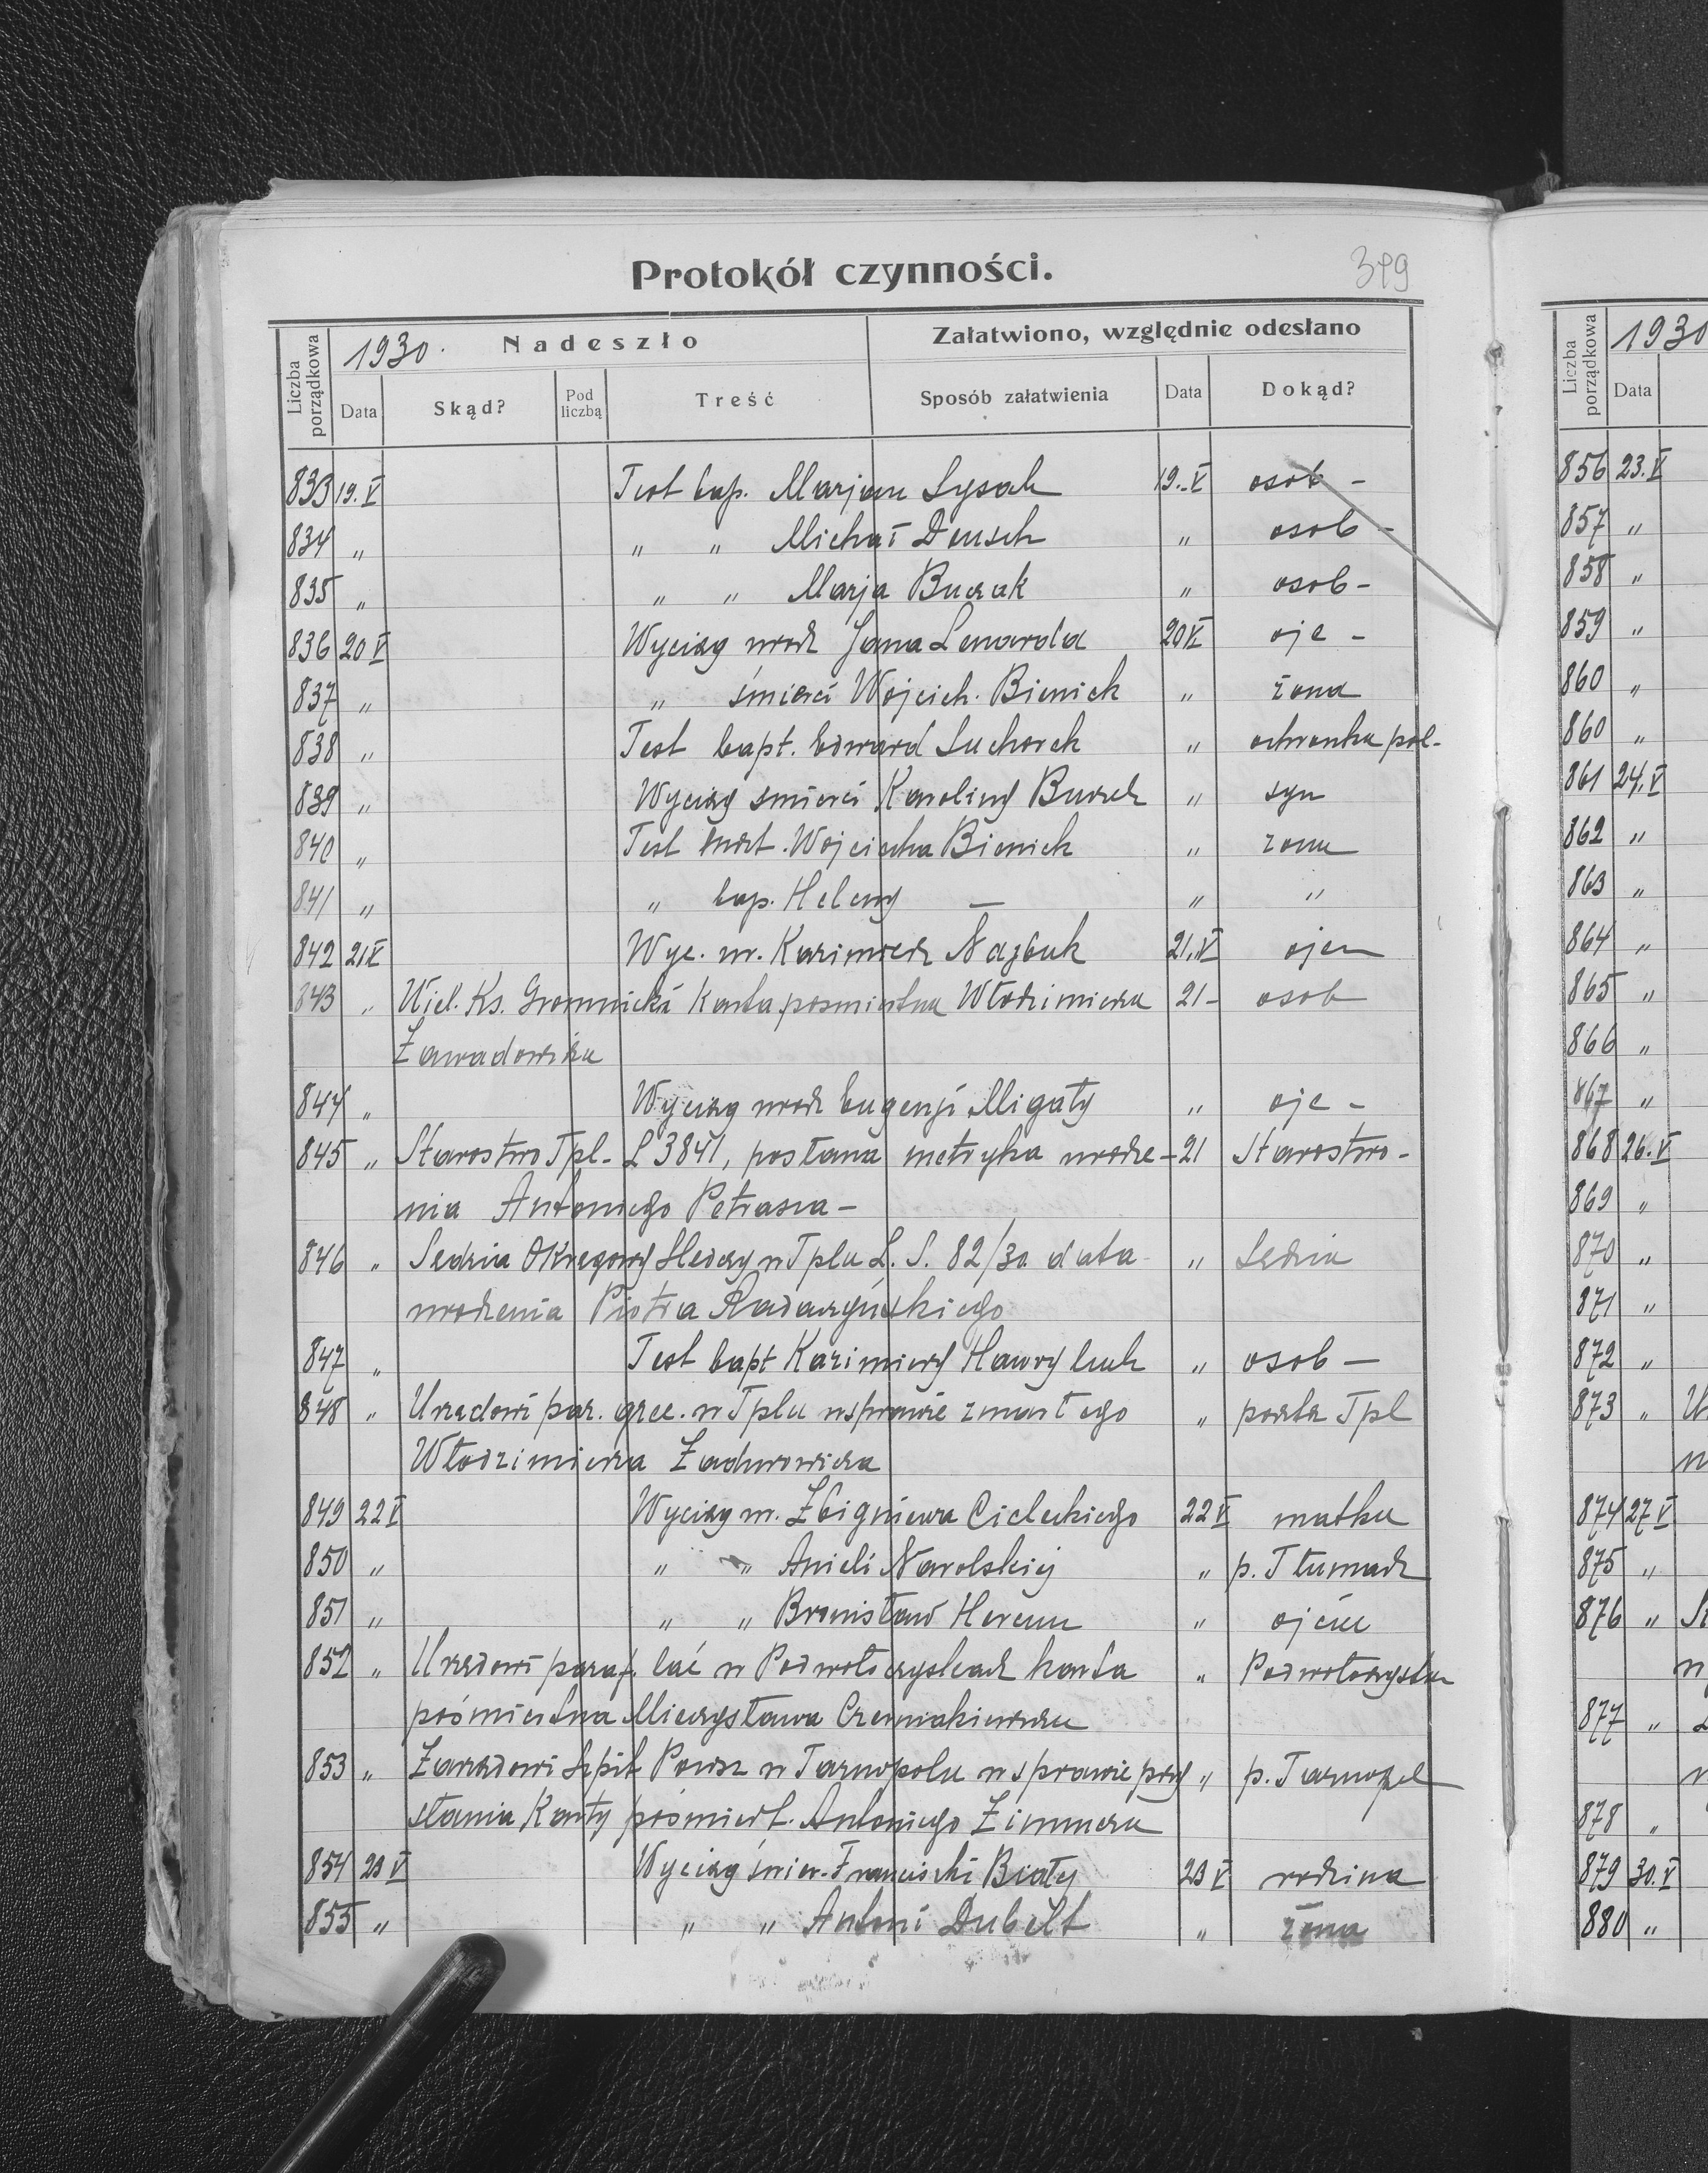 Protokół czynności.
379
Liczba porządkowa
1930.
Nadeszło
Załatwiono, względnie odesłano
Data
Skąd?
Pod liczbą
Treść
Sposób załatwienia
Data
Dokąd?
833 19.V Test bap. Marjan Lysak 19.V osob -
834 " " " Michał Deusch " osob -
835 " " " Marja Burak " osob -
836 20 V Wyciąg urodz Jana Lenarda 20 V ojc -
837 " " śmierci Wojciech. Bieniek " żona
838 " Test bapt. Edward Suchorek " ochronka pol-
839 " Wyciąg śmierci Karoliny " syn
840 " Test mort. Wojciecha Bieniek " żona
841 " " bap. Heleny — " "
842 21 V Wyc. ur. Kazimierz 21.V ojcu
843 " Wiel. Ks. Gromnicki Karta pośmiertna Włodzimierza 21- osob
Zawadowicza
844 " Wyciąg urodz Eugenji Migały " ojc -
845 " Starostwo Tpl- L 3841, posłana metryka urodze- 21 Starostwo -
nia Antoniego Petrasza -
846 " Sędzia Okręgowy Śledczy w Tplu L. S. 82/30 data " Sędzia
urodzenia Piotra
847 " Test bapt Kazimiery Hawryluk " osob —
848 " Urzędowi par. grec. w Tplu w sprawie zmarłego " poczta Tpl
Włodzimierza
849 22 V Wyciąg ur. Zbigniewa Cieleckiego 22 V matka
850 " " " Anieli Narolskiej " p. Tłumacz
851 " " " Bronisław " ojciec
852 " Urzędowi paraf. łać w Podwołoczyskach karta " Podwołoczyska
pośmiertna Mieczysława Czerniakiewicza
853 " Zarządowi Szpit Powsz w Tarnopolu w sprawie przy " p. Tarnopol
słania Karty pośmiert. Antoniego Zimmera
854 23 V Wyciąg śmier. Franciszki Biały 23 V rodzina
855 " " " Antoni Dubelt " żona
Liczba porządkowa
1930
Data
856 23.V
857 "
858 "
859 "
860 "
860 "
861 24.V
862 "
863 "
864 "
865 "
866 "
867 "
868 26.V
869 "
870 "
871 "
872 "
873 "
874 27 V
875 "
876 "
877 "
878 "
879 30.V
880 "